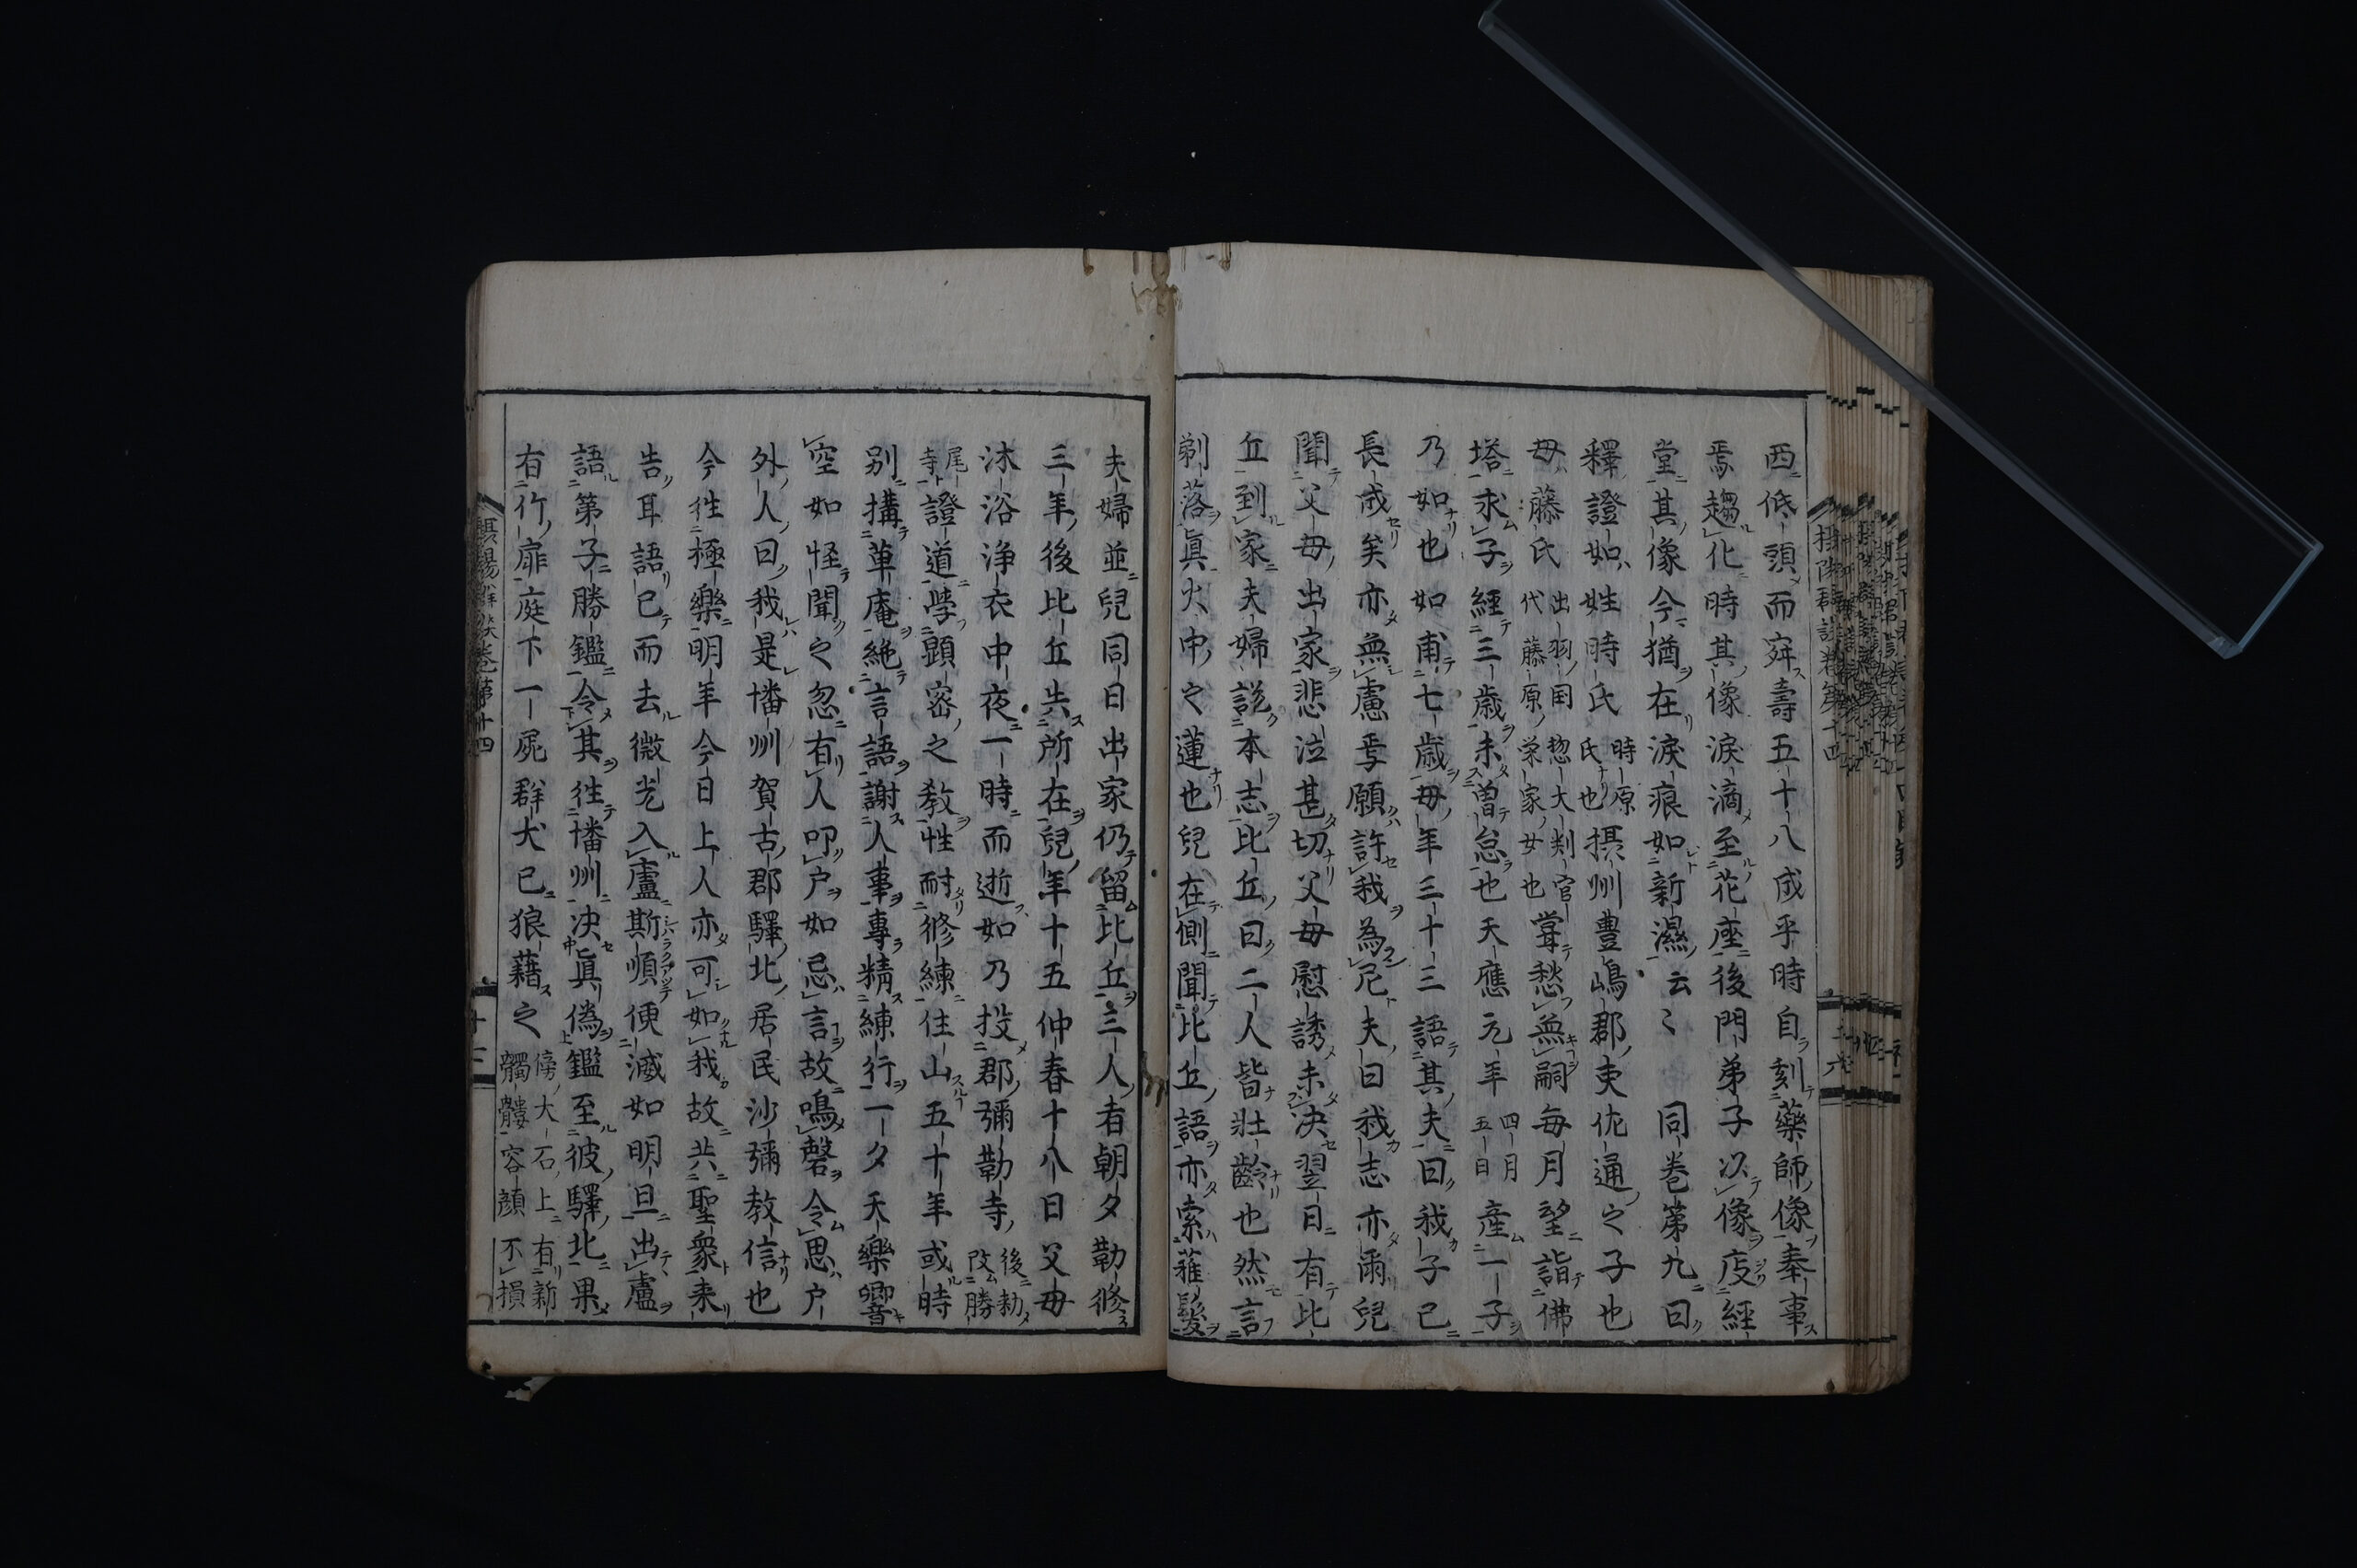 西低頭而寂壽五十八成乎時自刻藥師像奉事
焉趨化時其像淚滴至花座後門弟子以像庋經
堂其像今猶在淚痕如新濕云〻 同巻第九曰
釋證如姓時氏時原氏也摂州豊嶋郡吏佐通之子也
母藤氏出羽国惣大判官代藤原栄家女也甞愁無嗣毎月望詣佛
塔求子經三歳未曽怠也天應元年四月五日産一子
乃如也如甫七歳母年三十三語其夫曰我子已
長成矣亦無慮焉願許我為尼夫曰我志亦爾兒
聞父母出家悲泣甚切父母慰誘未决翌日有比
丘到家夫婦説本志比丘曰二人皆壮齡也然言
剃落真火中之蓮也兒在側聞比丘語亦索薙髪
夫婦並兒同日出家仍留比丘三人者朝夕勤修
三年後比丘失所在兒年十五仲春十八日父母
沐浴浄衣中夜一時而逝如乃投郡彌勒寺後勅改勝
尾寺證道學顕密之教性耐修練住山五十年或時
别搆草庵絶言語謝人事專精練行一夕天樂響
空如怪聞之忽有人叩户如忌言故鳴磬令思户
外人曰我是播州賀古郡驛北居民沙彌教信也
今徃極樂明年今日上人亦可如我故共聖衆来
告耳語已而去微光入廬斯順便滅如明旦出廬
語第子勝鑑令其徃播州决真偽鑑至彼驛北果
有竹扉庭下一屍群犬已狼藉之傍大石上有新髑髏容顔不損
摂陽群談巻第十四
十三